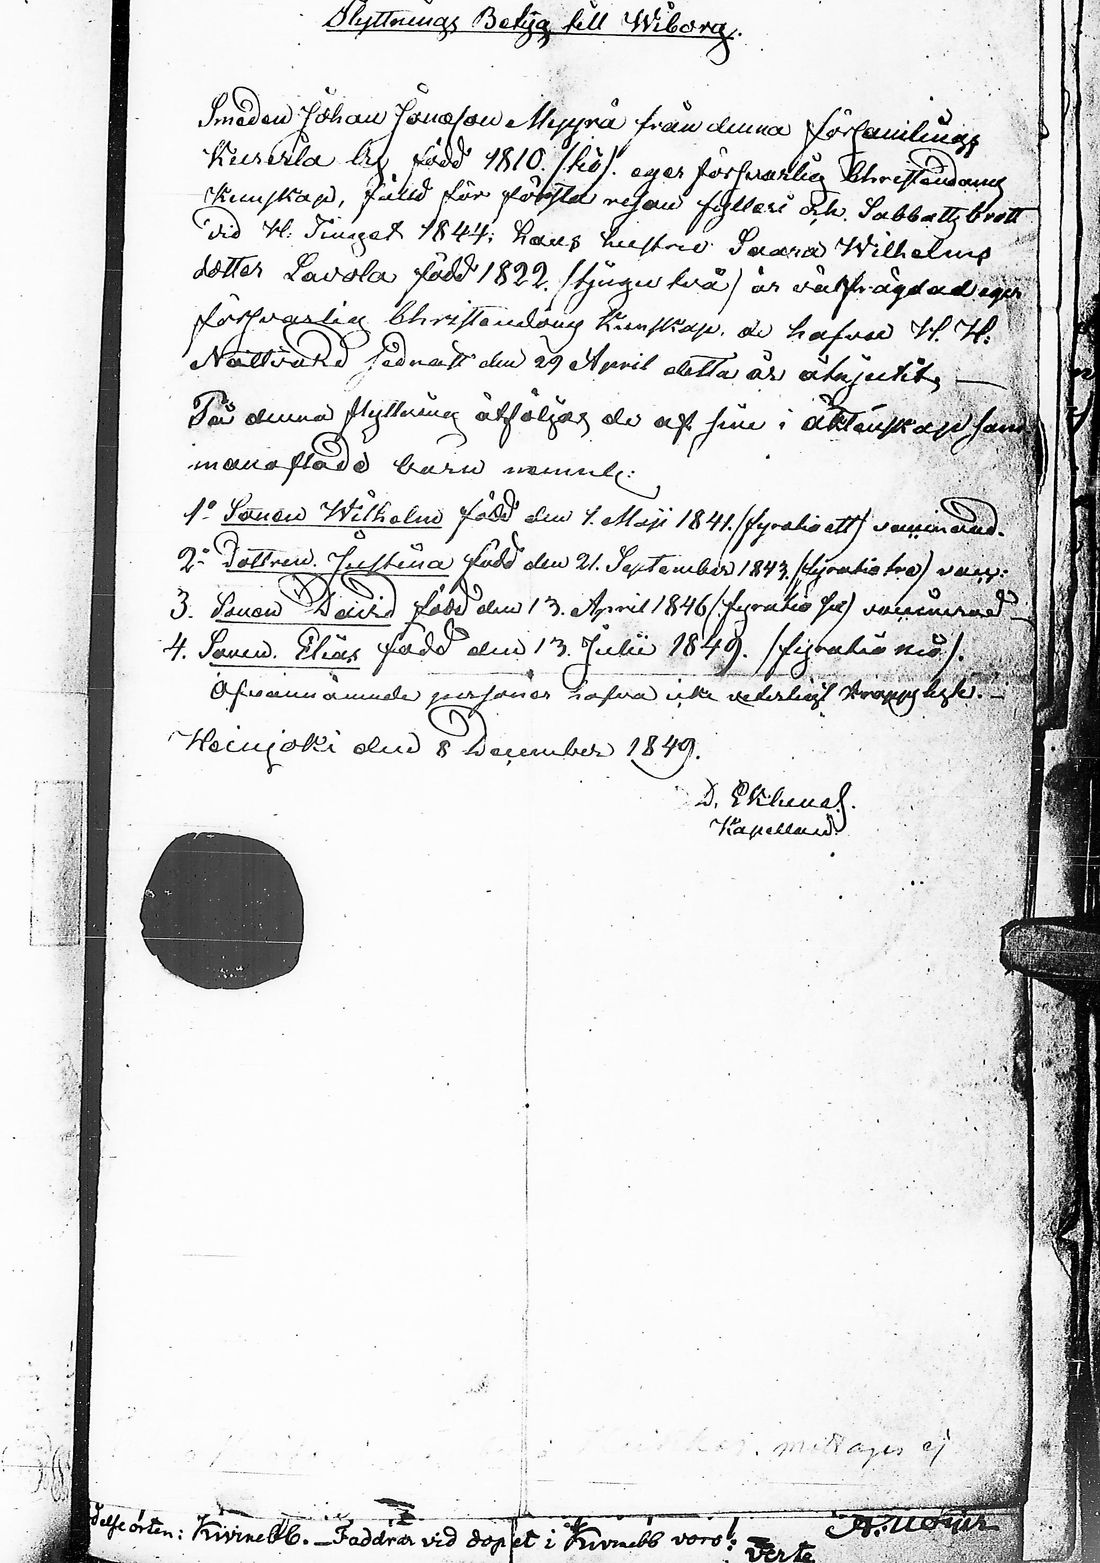 Flyttnings Betyg till Wiborg.
Smeden Johan Jonasson Myyrä från denna församlings
by född 1810. /tio/. eger försvarlig Christendoms
kunskap, fälld för första resan fylleri och Sabbattsbrott
vid H. Tinget 1844; hans hustru Saara Wilhelms
dotter Lavola född 1822. /tjugutvå/ är välfrägdad eger
försvarlig Christendoms kunskap. de hafva H. H:
Nattvard sednast den 29 April detta år åtnjutit, —
På denna flyttning åtföljas de af sine i äktenskap sam
manaflade barn nemnl:
1º Sonen Wilhelm född den 1. Maji 1841. /fyratioett/ vaccinerad.
2º Dottren. Justina född den 21. September 1843. /fyratiotre/ vacc:
3. Sonen David född den 13. April 1846 /fyratiosex/ vaccinerad
4. Sonen. Elias född den 13. Julii 1849. /fyrationio/.
Ofvannämnde personer hafva icke vederligt kroppslyte. —
Heinjoki den 8 December 1849.
D. Eklund.
Kapellan
mottages ej
delseorten: Kivinebb. — Faddrar vid dopet i Kivinebb voro:
Verte